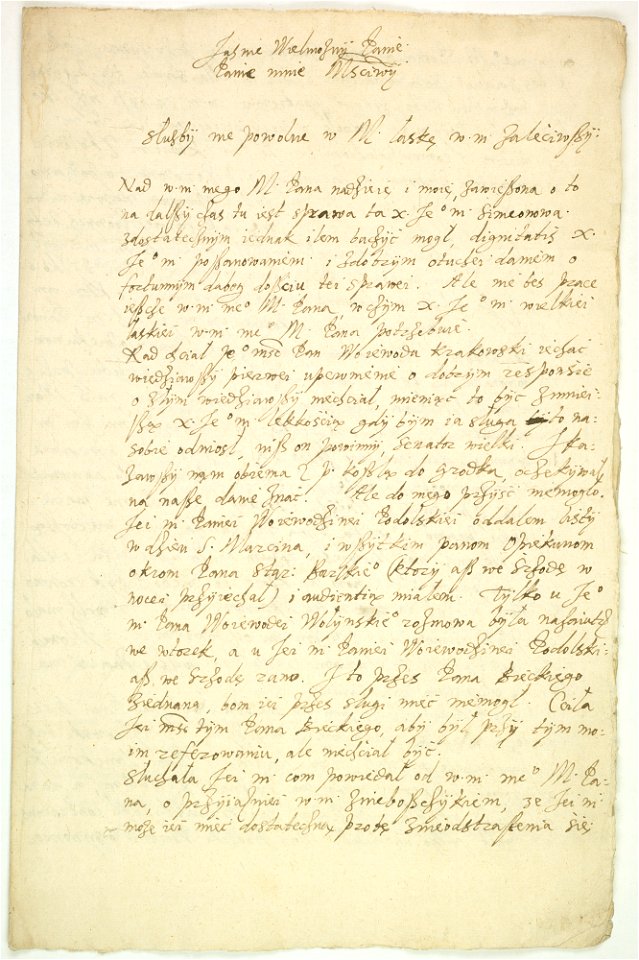 Jasnie Wielmozny Panie
Panie mnie Msciwy
Słuzby me powolne w M. łaskę w.m. zaleciwszy.
Nad w.m. mego M. Pana nadzieię i moię, zawieszona o to
na dalszy czas tu iest sprawa ta x. Jeº m. Simeonowa.
zdostatecznym iednak ilem baczyć mogł, dignitatis x.
Jeº m. poszanowaniem i zdobrym otuchei damem o
fortunnym dabog dosciu tei sprawei. Ale nie bes prace
iesce w.m. meº M. Pana, wczym x. Jeº m. wielkiei
łaskiei w.m. meº M. Pana potrzebuie.
Rad chciał Jeº msc Pan Woiewoda Krakowski iechac
wiedziawszy pierwei upewnienie o dobrym responsie
o złym wiedziawszy niechciał, mieniąc to być zmniei-
szą x. Jeº m. lekkoscią gdy bym ia sługa to na
sobie odniosł, nisz on powinny, Senator wielki. Ska-
zawszy nam obiema z p. koszlą do Grodka, oczekiwał
na nasze danie znac. Ale do niego przyść niemogło.
Jei m. Paniei Woiewodzinei Podolskiei oddałem listy
w dzien S. Marcina, i wszytkim panom Opiekunom
okrom Pana Star: Barskieº (ktory asz we Srzodę w
nocei przyiechał) i audientią miałem. Tylko u Jeº
m. Pana Woiewodei Wołynskieº rozmowa była nazaiutrz
we wtorek, a u Jei m. Paniei Woiewodzinei Podolski-
asz we Srzodę rano. I to przes Pana Breckiego
ziednaną, bom iei przes sługi miec niemogł. Cciała
Jei msc tym Pana Breckiego, aby był przy tym mo-
im referowaniu, ale niechciał być.
Słuchała Jei m. com powiedał od w.m. meº M. Pa-
na, o przyiazniei w.m. znieboszczykiem, ze Jei m.
może iei miec dostateczną probę znieodstraszenia się